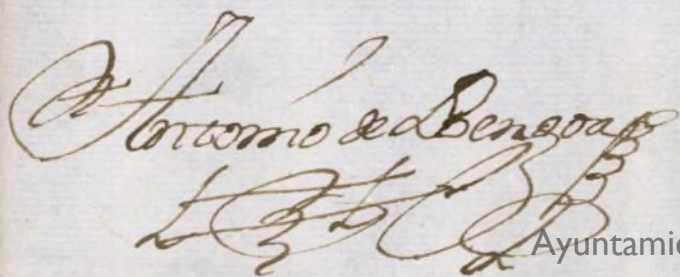 Antonio de Bengoa
Ayuntamie